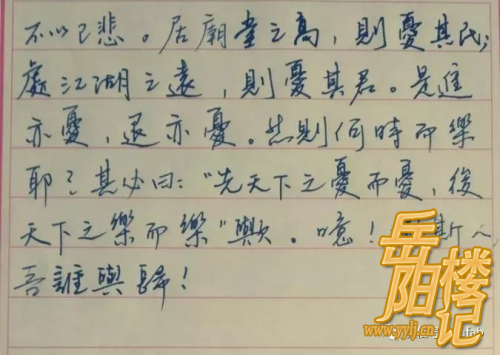 不以己悲。居廟堂之高，則憂其民；
處江湖之遠，則憂其君。是進
亦憂，退亦憂。然則何時而樂
耶？其必曰："先天下之憂而憂，後
天下之樂而樂"歟。噫！斯人，
吾誰與歸！
岳阳楼记
www.yylj.cn